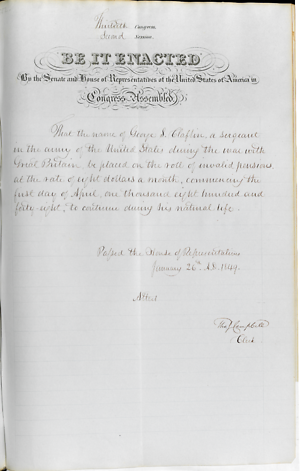 Thirtieth Congress
Second Session
BE IT ENACTED
By the Senate and House of Representatives of the United States of America in
Congress Assembled
That the name of George S. Claflin, a sergeant
in the army of the United States during the war with
Great Britain, be placed on the roll of invalid pensions,
at the rate of eight dollars a month, commencing the
first day of April, one thousand eight hundred and
forty-eight, to continue during his natural life.
Passed the House of Representatives
January 26th A.D. 1849.
Attest
Tho. J. Campbell
Clerk